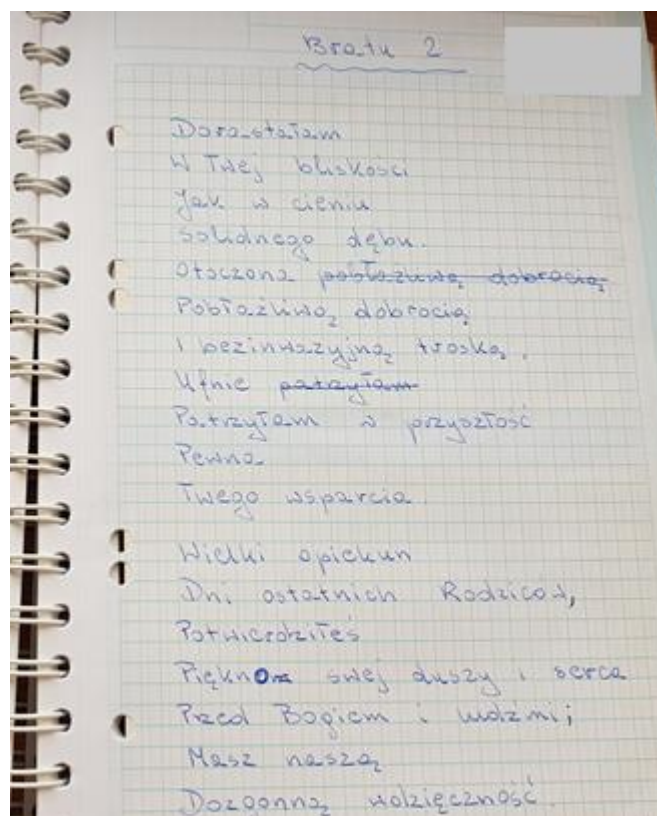 Bratu 2
Dorastałam
W Twej bliskości
Jak w cieniu
Solidnego dębu.
Otoczona pobłażliwą dobrocią
Pobłażliwą dobrocią
I bezinwazyjną troską.
Ufnie patrzyłam
Patrzyłam w przyszłość
Pewna
Twego wsparcia.
Wielki opiekun
Dni ostatnich Rodziców,
Potwierdziłeś
Piękno swej duszy i serca
Przed Bogiem i ludźmi;
Masz naszą
Dozgonną wdzięczność.